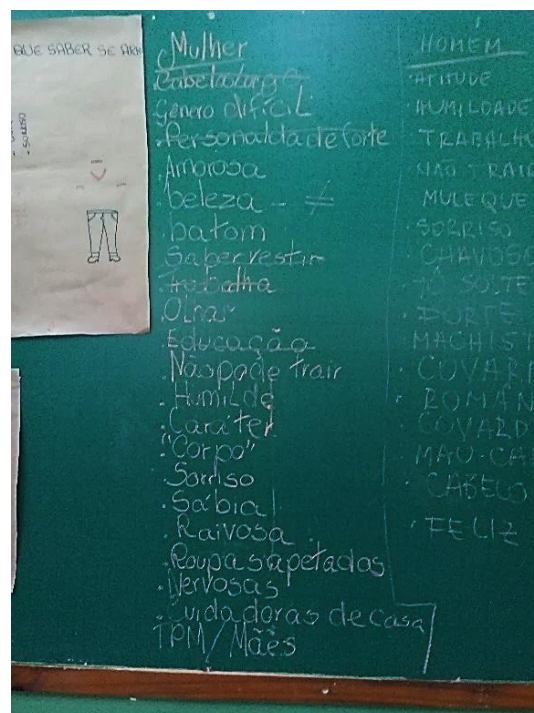 QUE SABER SE
SORRISO
Mulher
Cabelo large
Gênero difícil
.Personalidade forte
.Amorosa
.beleza - ≠
.batom
.Saber vestir
.Trabalha
.Olhar
.Educação
.Não pode trair
.Humilde
.Caráter
."Corpo"
.Sorriso
.Sábia
.Raivosa
.Roupas apetadas
.Nervosas
.Cuidadoras de casa
TPM/Mães
HOMEM
·ATITUDE
·HUMILDADE
TRABALHO
NÃO TRAIR
MULEQUE
·SORRISO
·CHAVOSO
·FORTE
MACHIST
·COVARD
·ROMÂN
·COVARD
MAU-CA
·CABELO
·FELIZ